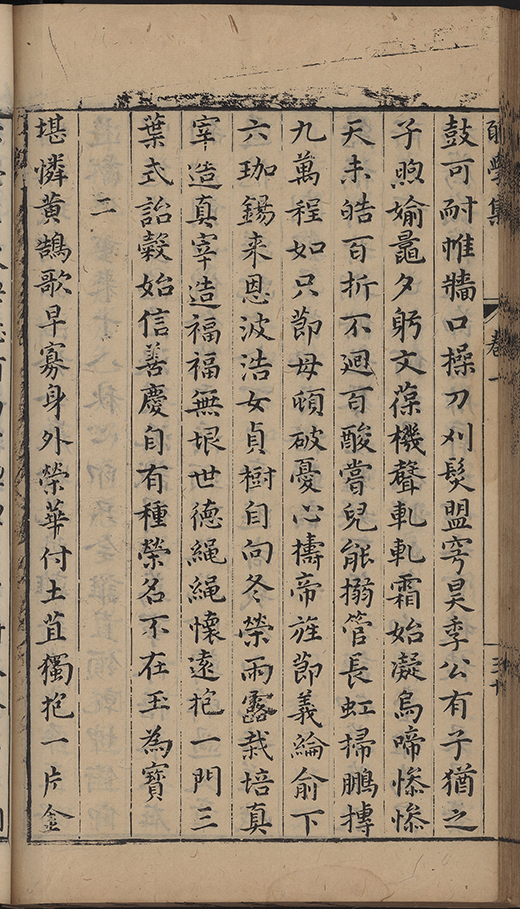 學集
卷一
三十
鼓可耐帷牆口操刀刈髮盟穹昊季公有子猶之
子煦媮毳夕躬文葆機聲軋軋霜始凝烏啼慘慘
天未皓百折不迴百酸嘗兒能搦管長虹掃鵬摶
九萬程如只節母頓破憂心擣帝旌節義綸俞下
六珈錫来恩波浩女貞樹自向冬榮雨露栽培真
宰造真宰造福福無垠世德繩繩懷遠抱一門三
葉式詒穀始信善慶自有種榮名不在玉為寶
二
堪憐黃鵠歌早寡身外榮華付土苴獨抱一片金